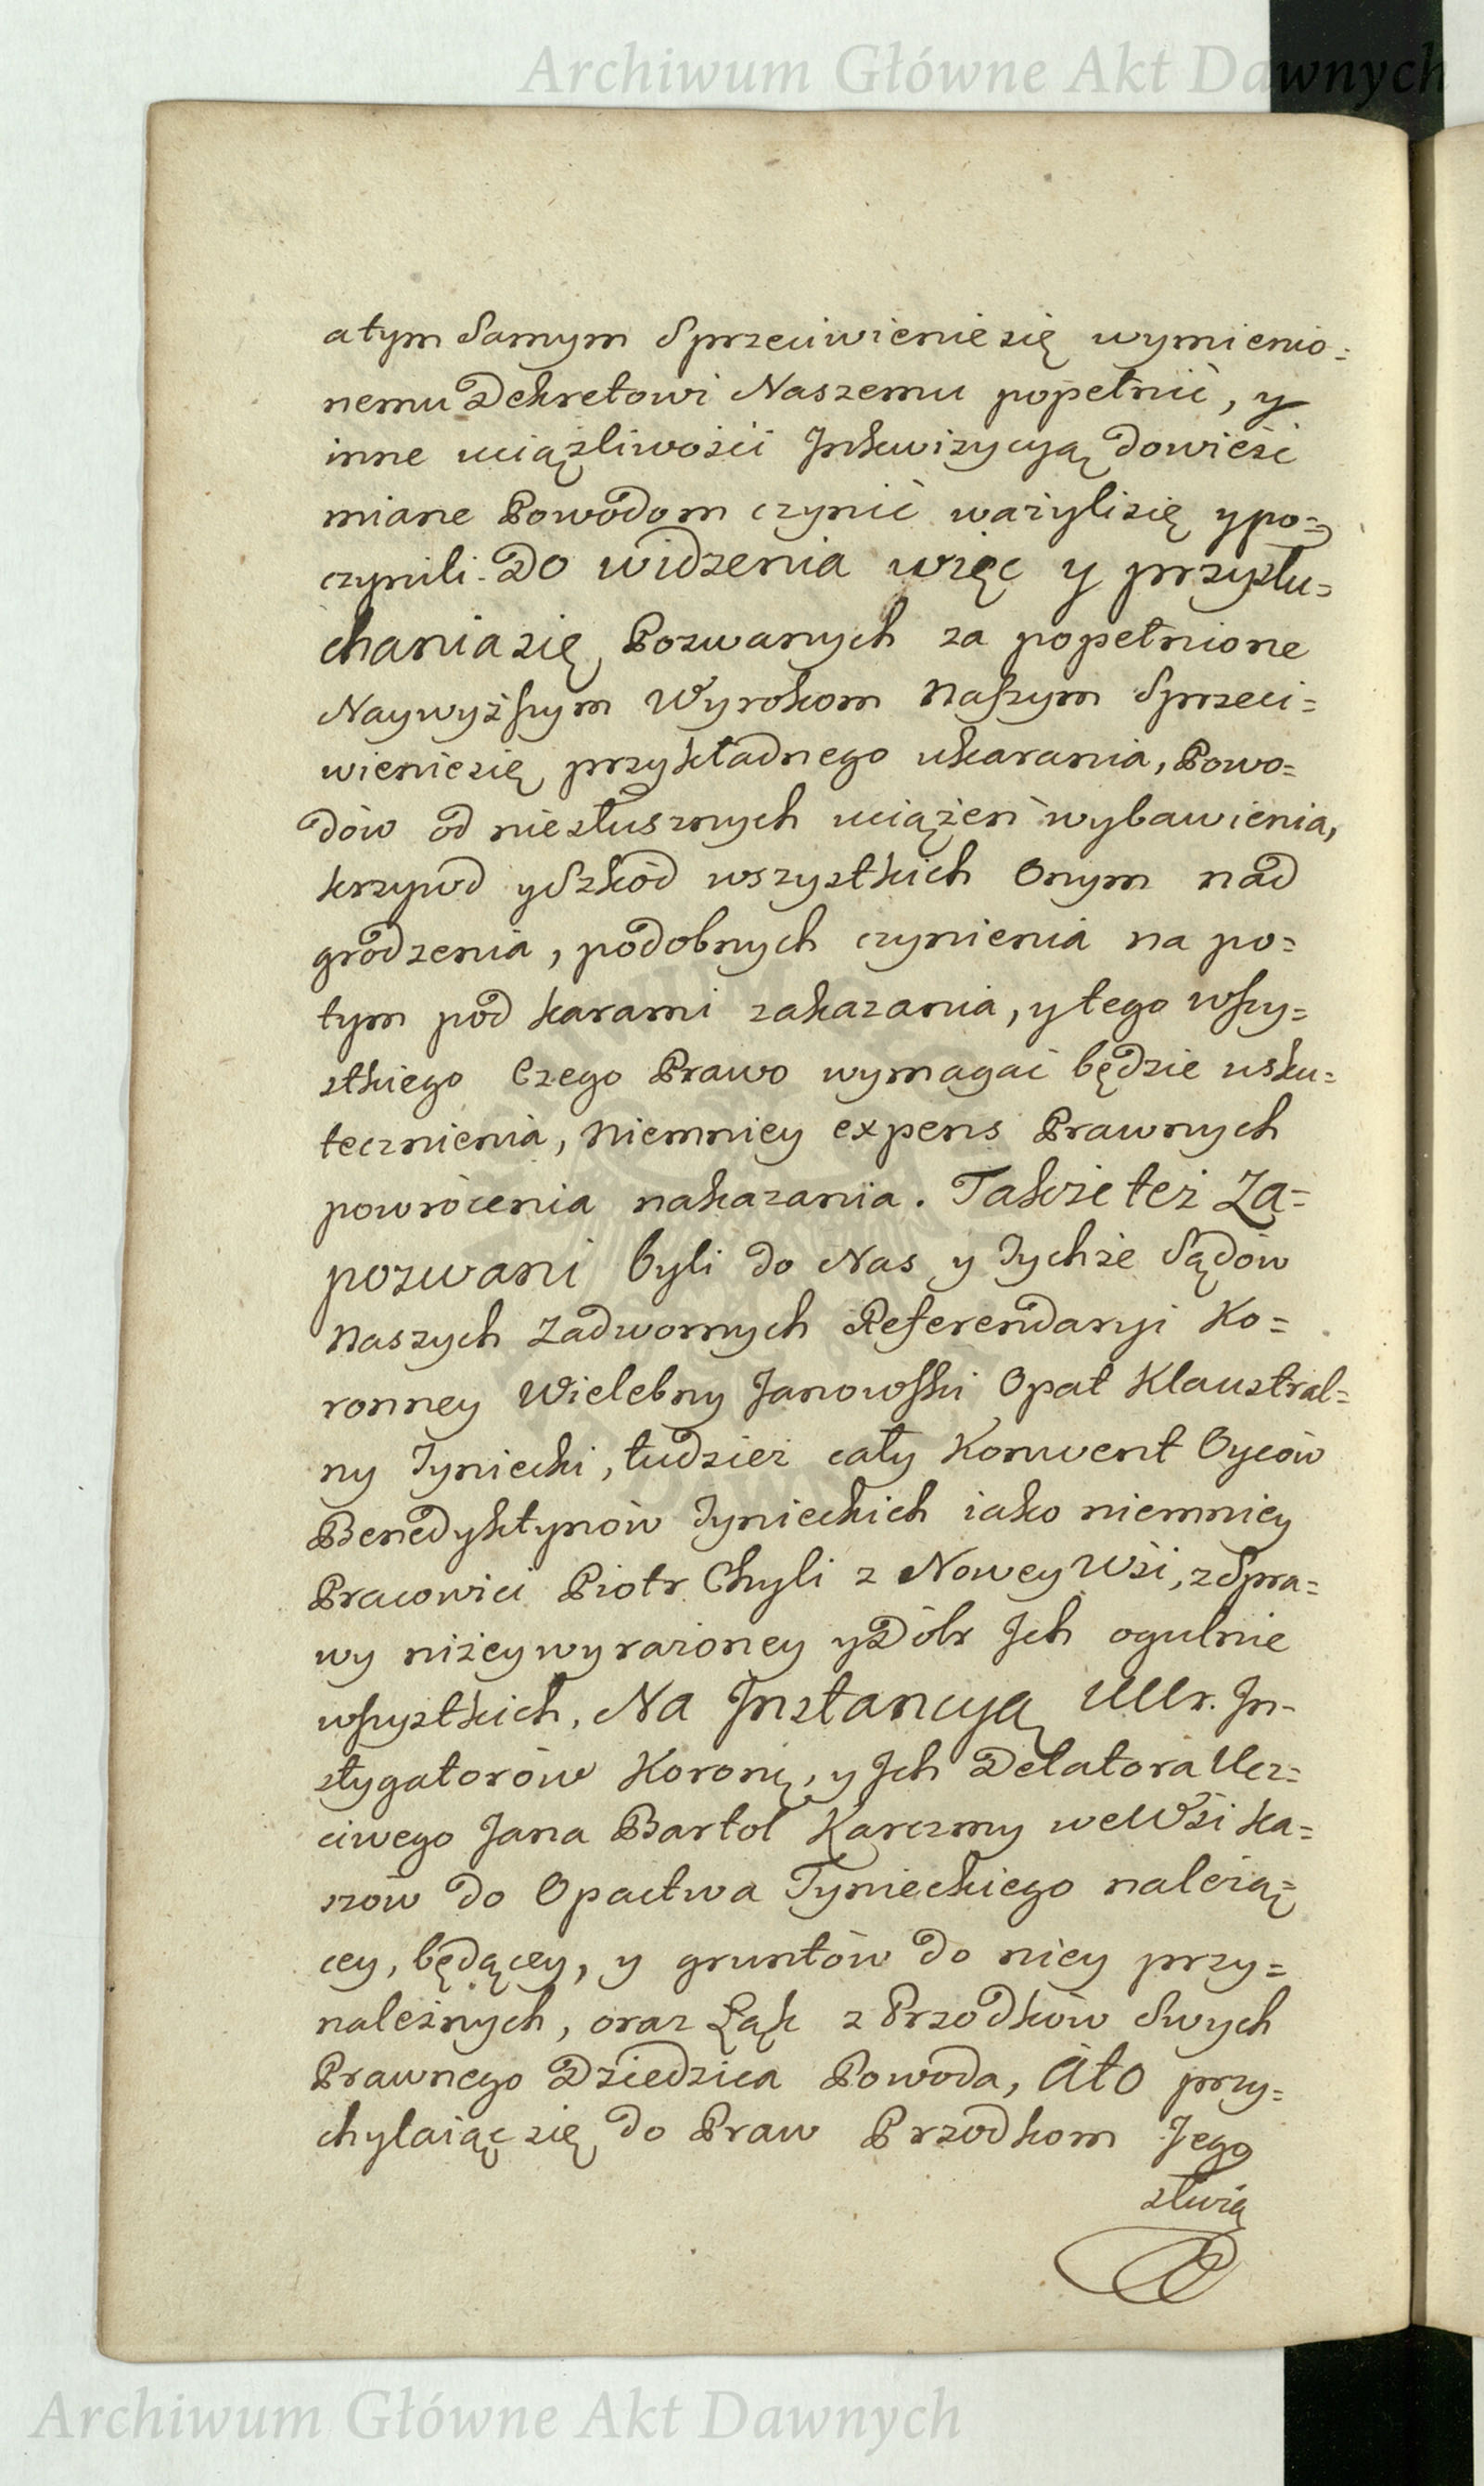 Archiwum Główne Akt Dawnych
atym Samym Sprzeciwienie się wymienio=
nemu Dekretowi Naszemu popełnić, y
inne uciążliwości Inkwizycyą dowieść
miane Powodom czynić ważyli się ypo=
czynili. Do widzenia więc y przysłu=
chania się Pozwanych za popełnione
Naywyższym Wyrokom Naszym Sprzeci=
wienie się przykładnego ukarania, Powo=
dów od niesłusznych uciążeń wybawienia,
krzywd y Szkód wszystkich Onym nad
grodzenia, podobnych czynienia na po=
tym pod karami zakazania, y tego wszy=
stkiego Czego Prawo wymagać będzie usku=
tecznienia, Niemniey expens Prawnych
powrócenia nakazania. Takżeteż Za=
pozwani byli do Nas y Tychże Sądów
Naszych Zadwornych Referendaryi Ko=
ronney Wielebny Janowski Opat Klaustral=
ny Tyniecki, tudzież cały Konwent Oyców
Benedyktynów Tynieckich iako niemniey
Pracowici Piotr Chyli z Nowey Wsi, z Spra=
wy niżeywyrażoney y Dóbr Ich ogulnie
wszystkich, Na Instancyą Ur. In-
stygatorów Koronn, y Ich Delatora Ucz=
ciwego Jana Bartol Karczmy we Wsi Ka=
szów do Opactwa Tynieckiego należą=
cey, będącey, y gruntów do niey przy=
należnych, oraz Łąk z Przodków Swych
Prawnego Dziedzica Powoda, Ato przy=
chylaiąc się do Praw Przodkom Jego
służą
Archiwum Główne Akt Dawnych